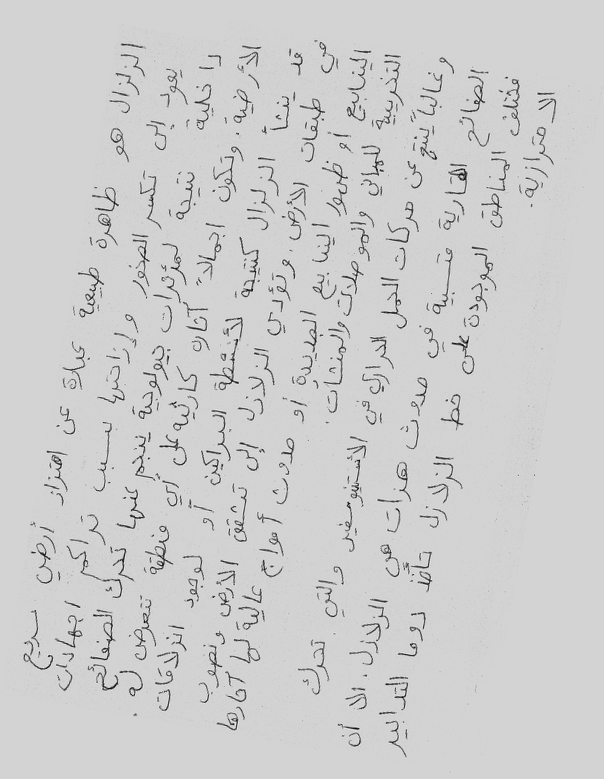 الزلزال هو ظاهرة طبيعية عبارة عن اهتزاز أرضي سريع
يعود إلى تكسر الصخور وإزاحتها بسبب تراكم اجهادات
داخلية نتيجة لمؤثرات جيولوجية ينجم عنها تحرك الصفائح
الأرضية. وتكون اجمالاً آثاره كارثية على أي منطقة تتعرض له.
قد ينشأ الزلزال كنتيجة لأنشطة البراكين أو لوجود انزلاقات
في طبقات الأرض. وتؤدي الزلازل إلى تشقق الأرض ونضوب
الينابيع أو ظهور الينابيع الجديدة أو حدوث أمواج عالية لها آثارها
التخريبية للمباني والموصلات والمنشآت.
وغالباً ينتج عن حركات الحمل الحراري في الأستينوسفير والتي تحرك
الصفائح القارية متسببة في حدوث هزات هي الزلازل. الا أن
مختلف المناطق الموجودة على خط الزلازل دوما التدابير
الاحترازية.